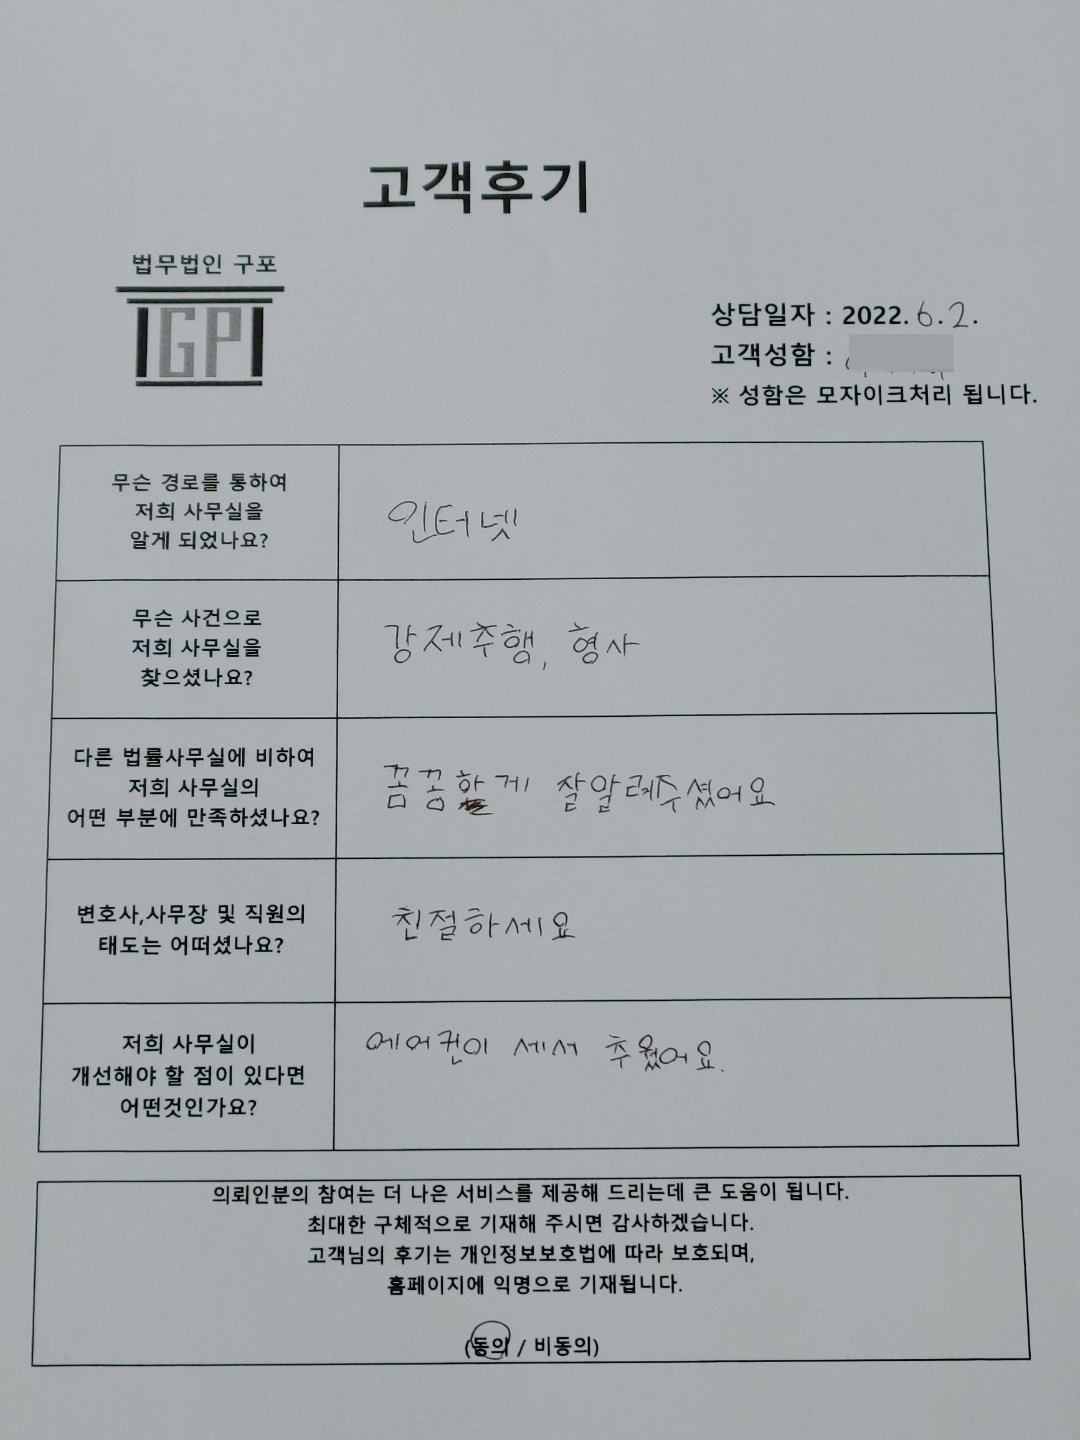 고객후기
법무법인 구포
IGPI
상담일자 : 2022. 6.2.
고객성함 :
※ 성함은 모자이크처리 됩니다.
무슨 경로를 통하여
저희 사무실을
알게 되었나요?
인터넷
무슨 사건으로
저희 사무실을
찾으셨나요?
강제추행, 형사
다른 법률사무실에 비하여
저희 사무실의
어떤 부분에 만족하셨나요?
꼼꼼하게 잘알려주셨어요
변호사,사무장 및 직원의
태도는 어떠셨나요?
친절하세요
저희 사무실이
개선해야 할 점이 있다면
어떤것인가요?
에어컨이 세서 추웠어요.
의뢰인분의 참여는 더 나은 서비스를 제공해 드리는데 큰 도움이 됩니다.
최대한 구체적으로 기재해 주시면 감사하겠습니다.
고객님의 후기는 개인정보보호법에 따라 보호되며,
홈페이지에 익명으로 기재됩니다.
(동의 / 비동의)